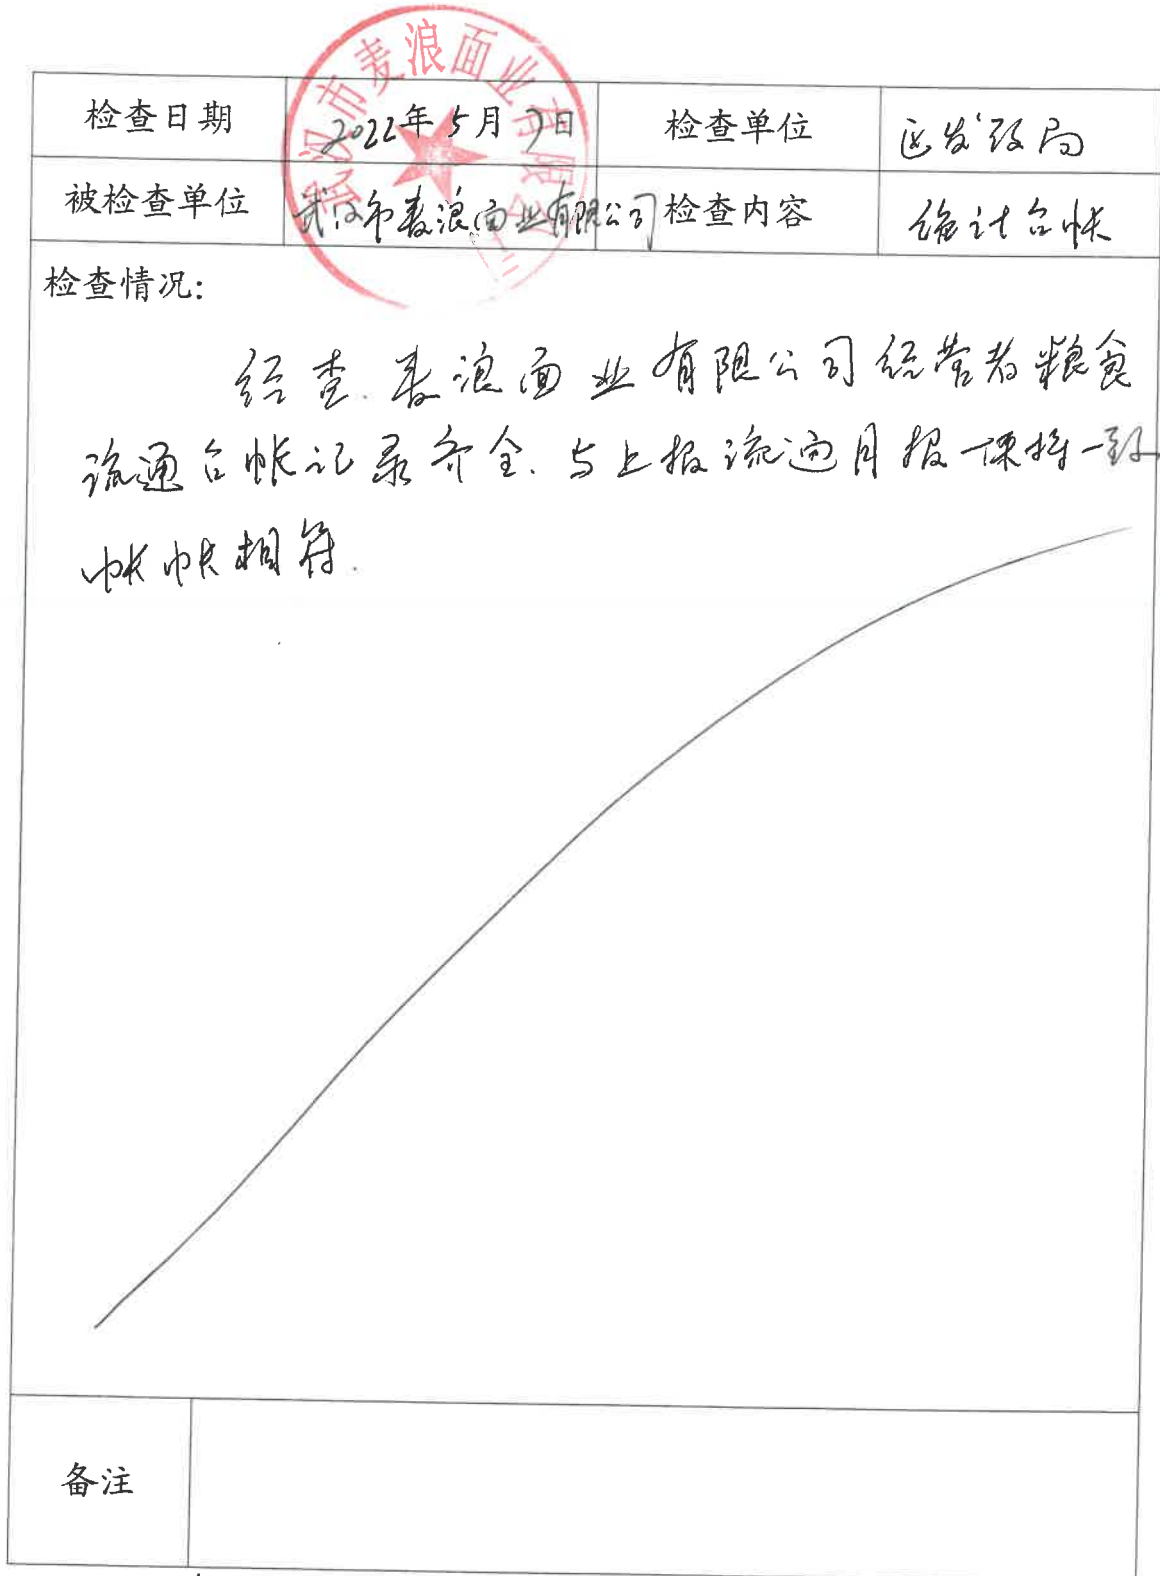 武汉市麦浪面业有限
检查日期 2022年5月7日 检查单位 区发改局
被检查单位 武汉市麦浪面业有限公司 检查内容 统计台帐
检查情况:
经查.麦浪面业有限公司经营者粮食
流通台帐记录齐全.与上报流通月报一保持一致
帐帐相符.
备注